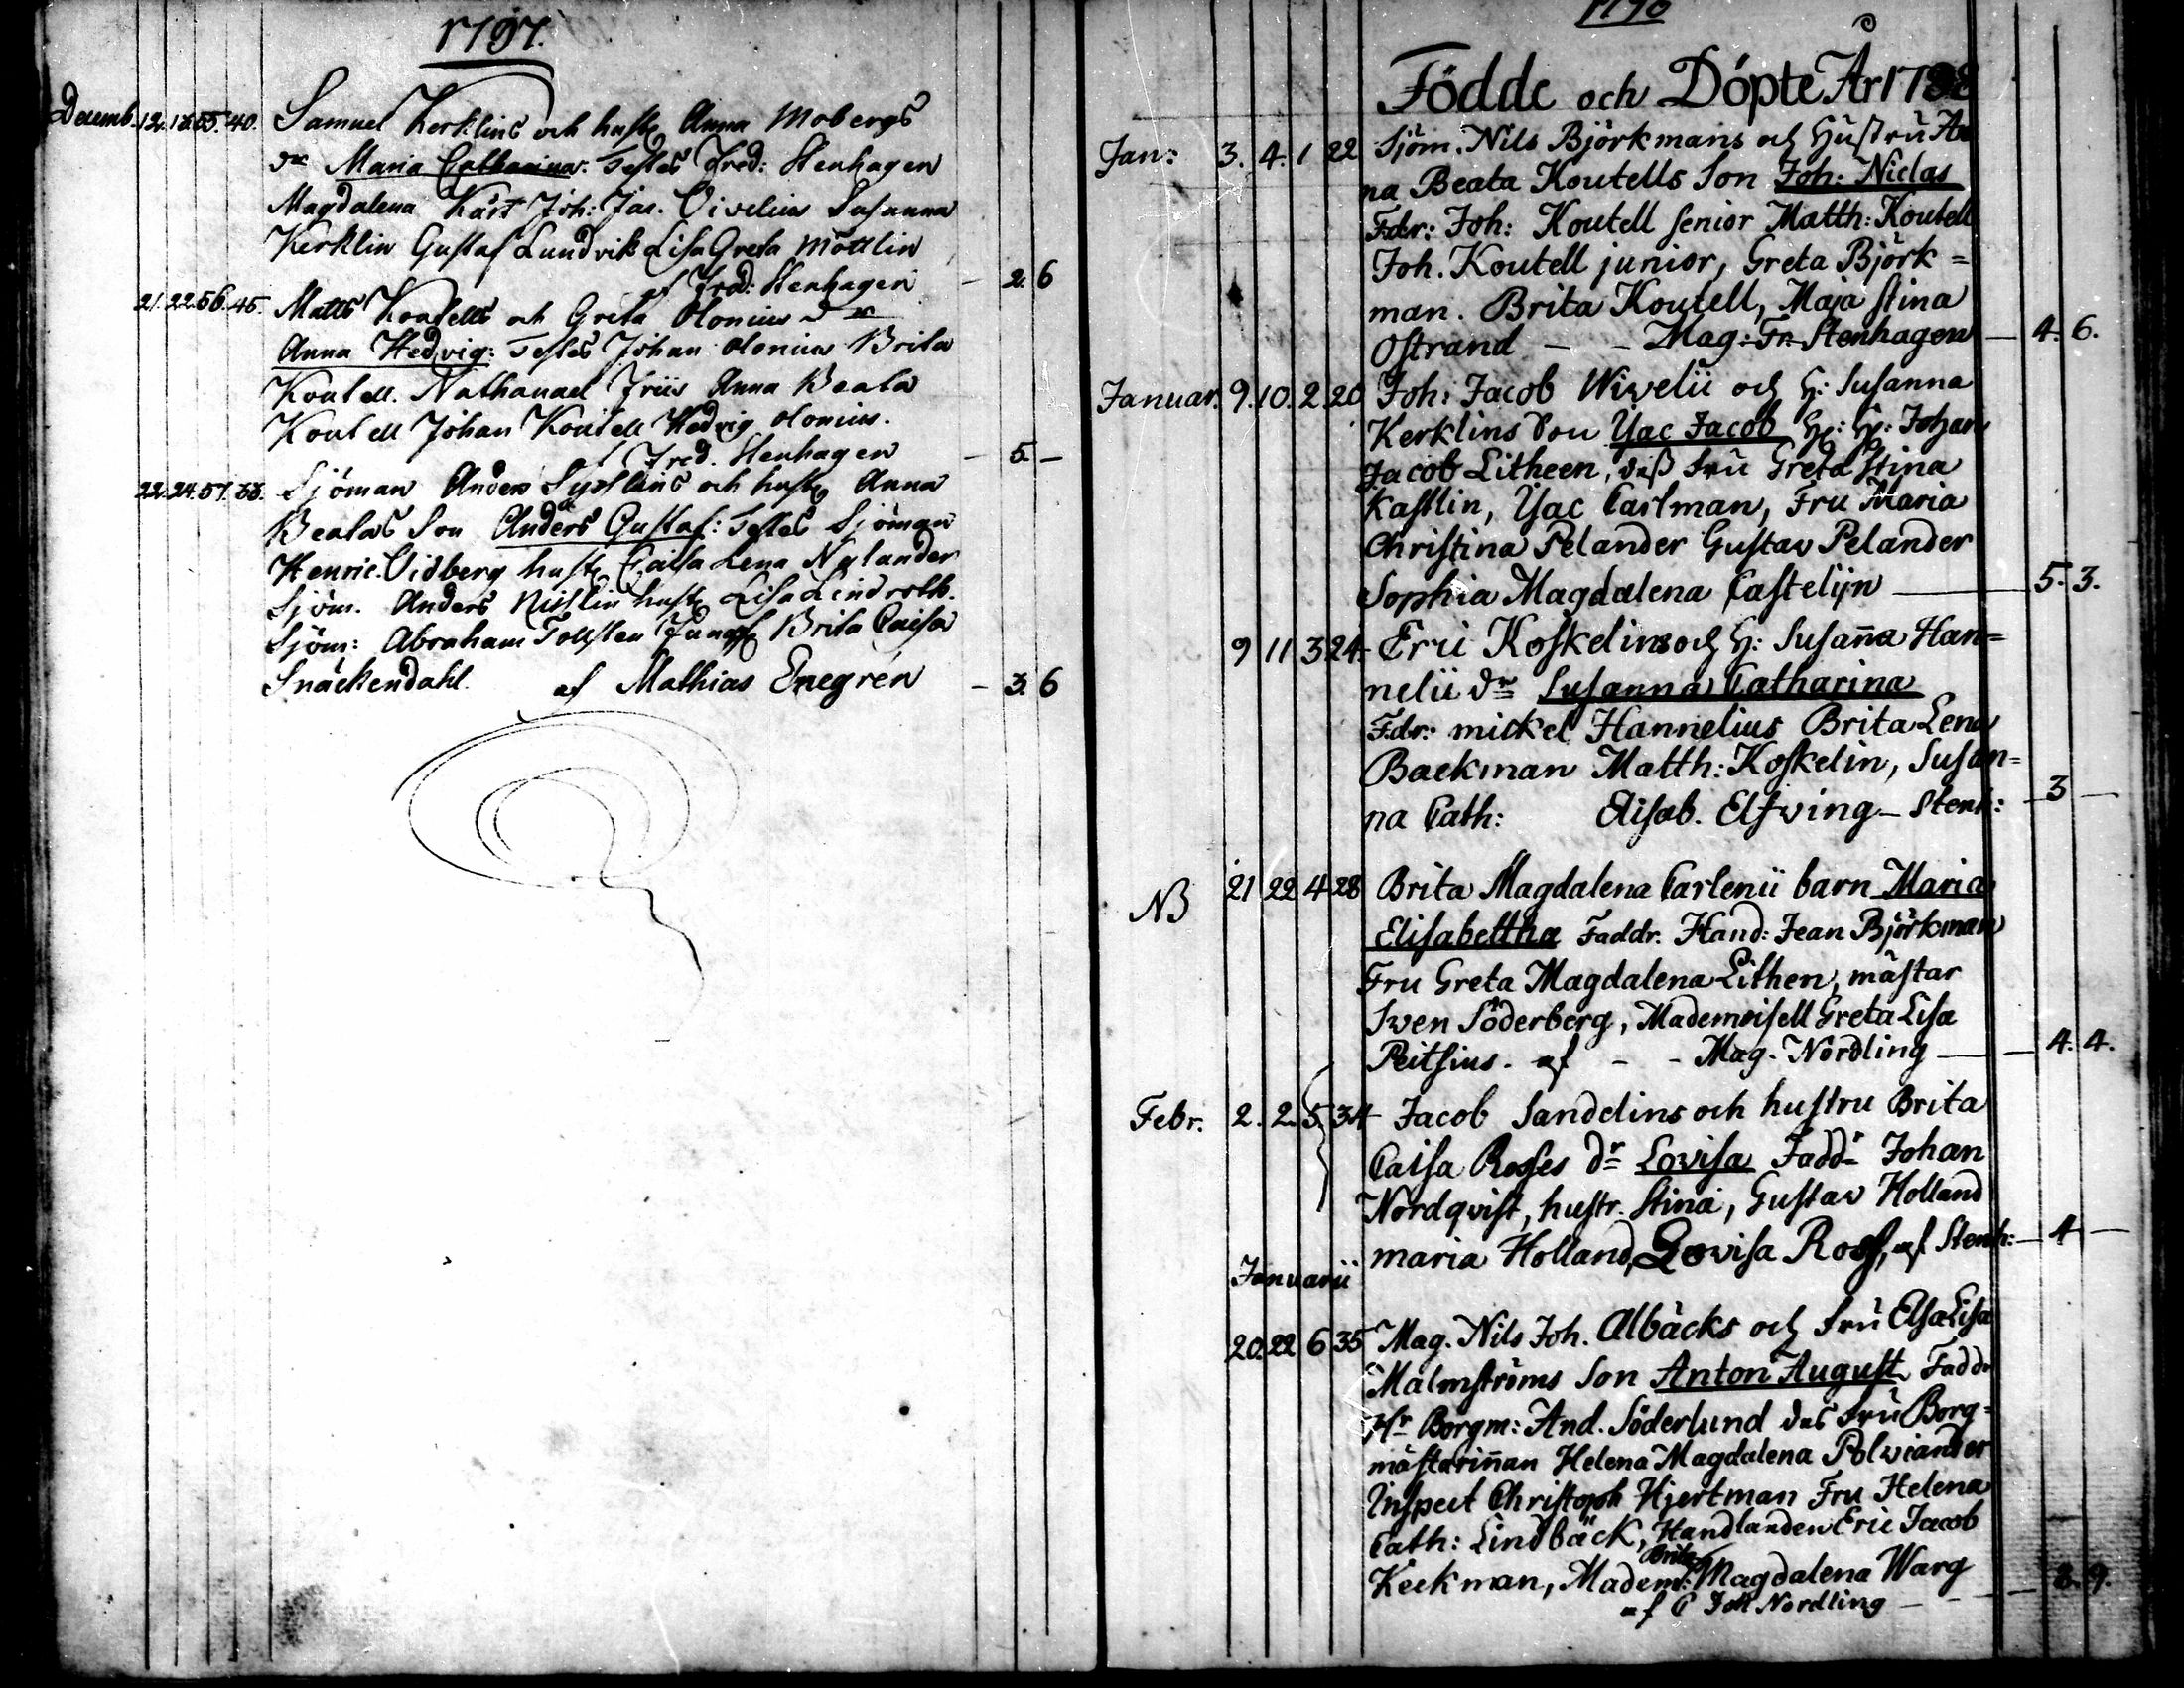 1797.
Decemb. 12. 13 55. 40. Samuel Kerklins och hust. Anna Mobergs
dr Maria Catharina. Testes Fred: Stenhagen
Magdalena Kärt Joh: Jac. Vivelius Susanna
Kerklin Gustaf Lundvik Lisa Greta Möttlin
af Fred: Stenhagen — 2. 6
21. 22. 56. 45. Matts Koutells och Greta Olonius dr
Anna Hedvig: Testes Johan Olonius Brita
Koutell. Nathanael Friis Anna Beata
Koutell Johan Koutell Hedvig Olonius.
Fred. Stenhagen — 5. —
22. 24. 57. 33. Sjöman Anders och hust. Anna
Beatas Son Anders Gustaf: Testes Sjöman
Henric. Vidberg hust. Caisa Lena Nylander
Sjöm. Anders hust. Lisa Lindroth.
Sjöm: Abraham Tollsten Jungf. Brita Caisa
Snäckendahl. af Mathias Enegrén — 3. 6
1798
Födde och Döpte År 1798
Jan: 3. 4. 1 22 Sjöm. Nils Björkmans och Hustru An
na Beata Koutells Son Joh: Niclas
Fdr: Joh: Koutell senior Matth: Koutell
Joh. Koutell junior, Greta Björk=
man. Brita Koutell, Maja Stina
Ostrand — — Mag: Fr Stenhagen — 4. 6.
Januar. 9. 10. 2. 20 Joh: Jacob Wiwelii och H: Susanna
Kerklins Son Isac Jacob H: H: Johan
Jacob Litheen, dess Fru Greta Stina
Kastlin, Isac Carlman, Fru Maria
Christina Pelander Gustav Pelander
Sophia Magdalena Castelijn — 5. 3.
9 11 3 24. Eric Koskelins och H: Susanna Han=
nelii dr Susanna Catharina
Fdr: mickel Hannelius Brita Lena
Backman Matth: Koskelin, Susan=
na Cath: Elisab. Elfving — Stenh: — 3 —
NB 21 22 4 28 Brita Magdalena Carlenii barn Maria
Elisabettha Faddr. Hand: Jean Björkman
Fru Greta Magdalena Lithen, mästar
Swen Söderberg, Mademoisell Greta Lisa
Peitsius. af — — Mag. Nordling — 4. 4.
Febr. 2. 2. 5. 34 Jacob Sandelins och hustru Brita
Caisa Rosses dr Lovisa Faddr Johan
Nordqvist, hustr. Stina, Gustav Holland
maria Holland, Lovisa Ross, af Stenh: — 4 —
Januarii
20. 22 6 35 Mag. Nils Joh. Albäcks och Fru Elsa Lisa
Malmströms Son Anton August Faddr
Hr Borgm: And. Söderlund des Fru Borg=
mästarinnan Helena Magdalena Polviander
Inspect Christoph Hjertman Fru Helena
Cath: Lindbäck, Handlanden Eric Jacob
Keckman, Madem: Brita Magdalena Warg
af C Joh Nordling — — 8. 9.